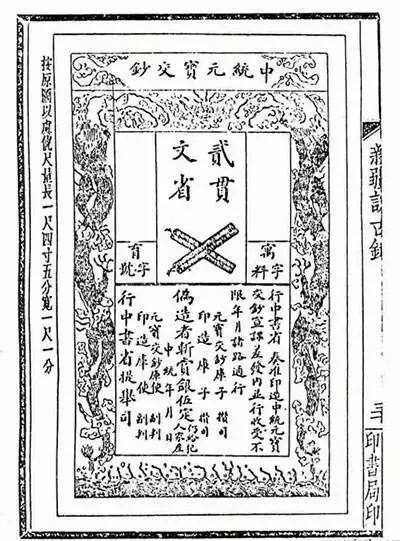 新疆訪古錄
印書局印
中統元寶交鈔
貳貫
文省
寓字料
育字號
行中書省 奏准印造中統元寶
交鈔宣課差發内並行收受不
限年月諸路通行
元寶交鈔庫子 攢司
印造庫子 攢司
偽造者斬賞銀伍定仍給犯人家産
中統 年 月 日
元寶交鈔庫使 副判
印造庫使 副判
行中書省提舉司
按原圖以慮俿尺量長一尺四寸五分寬一尺一分